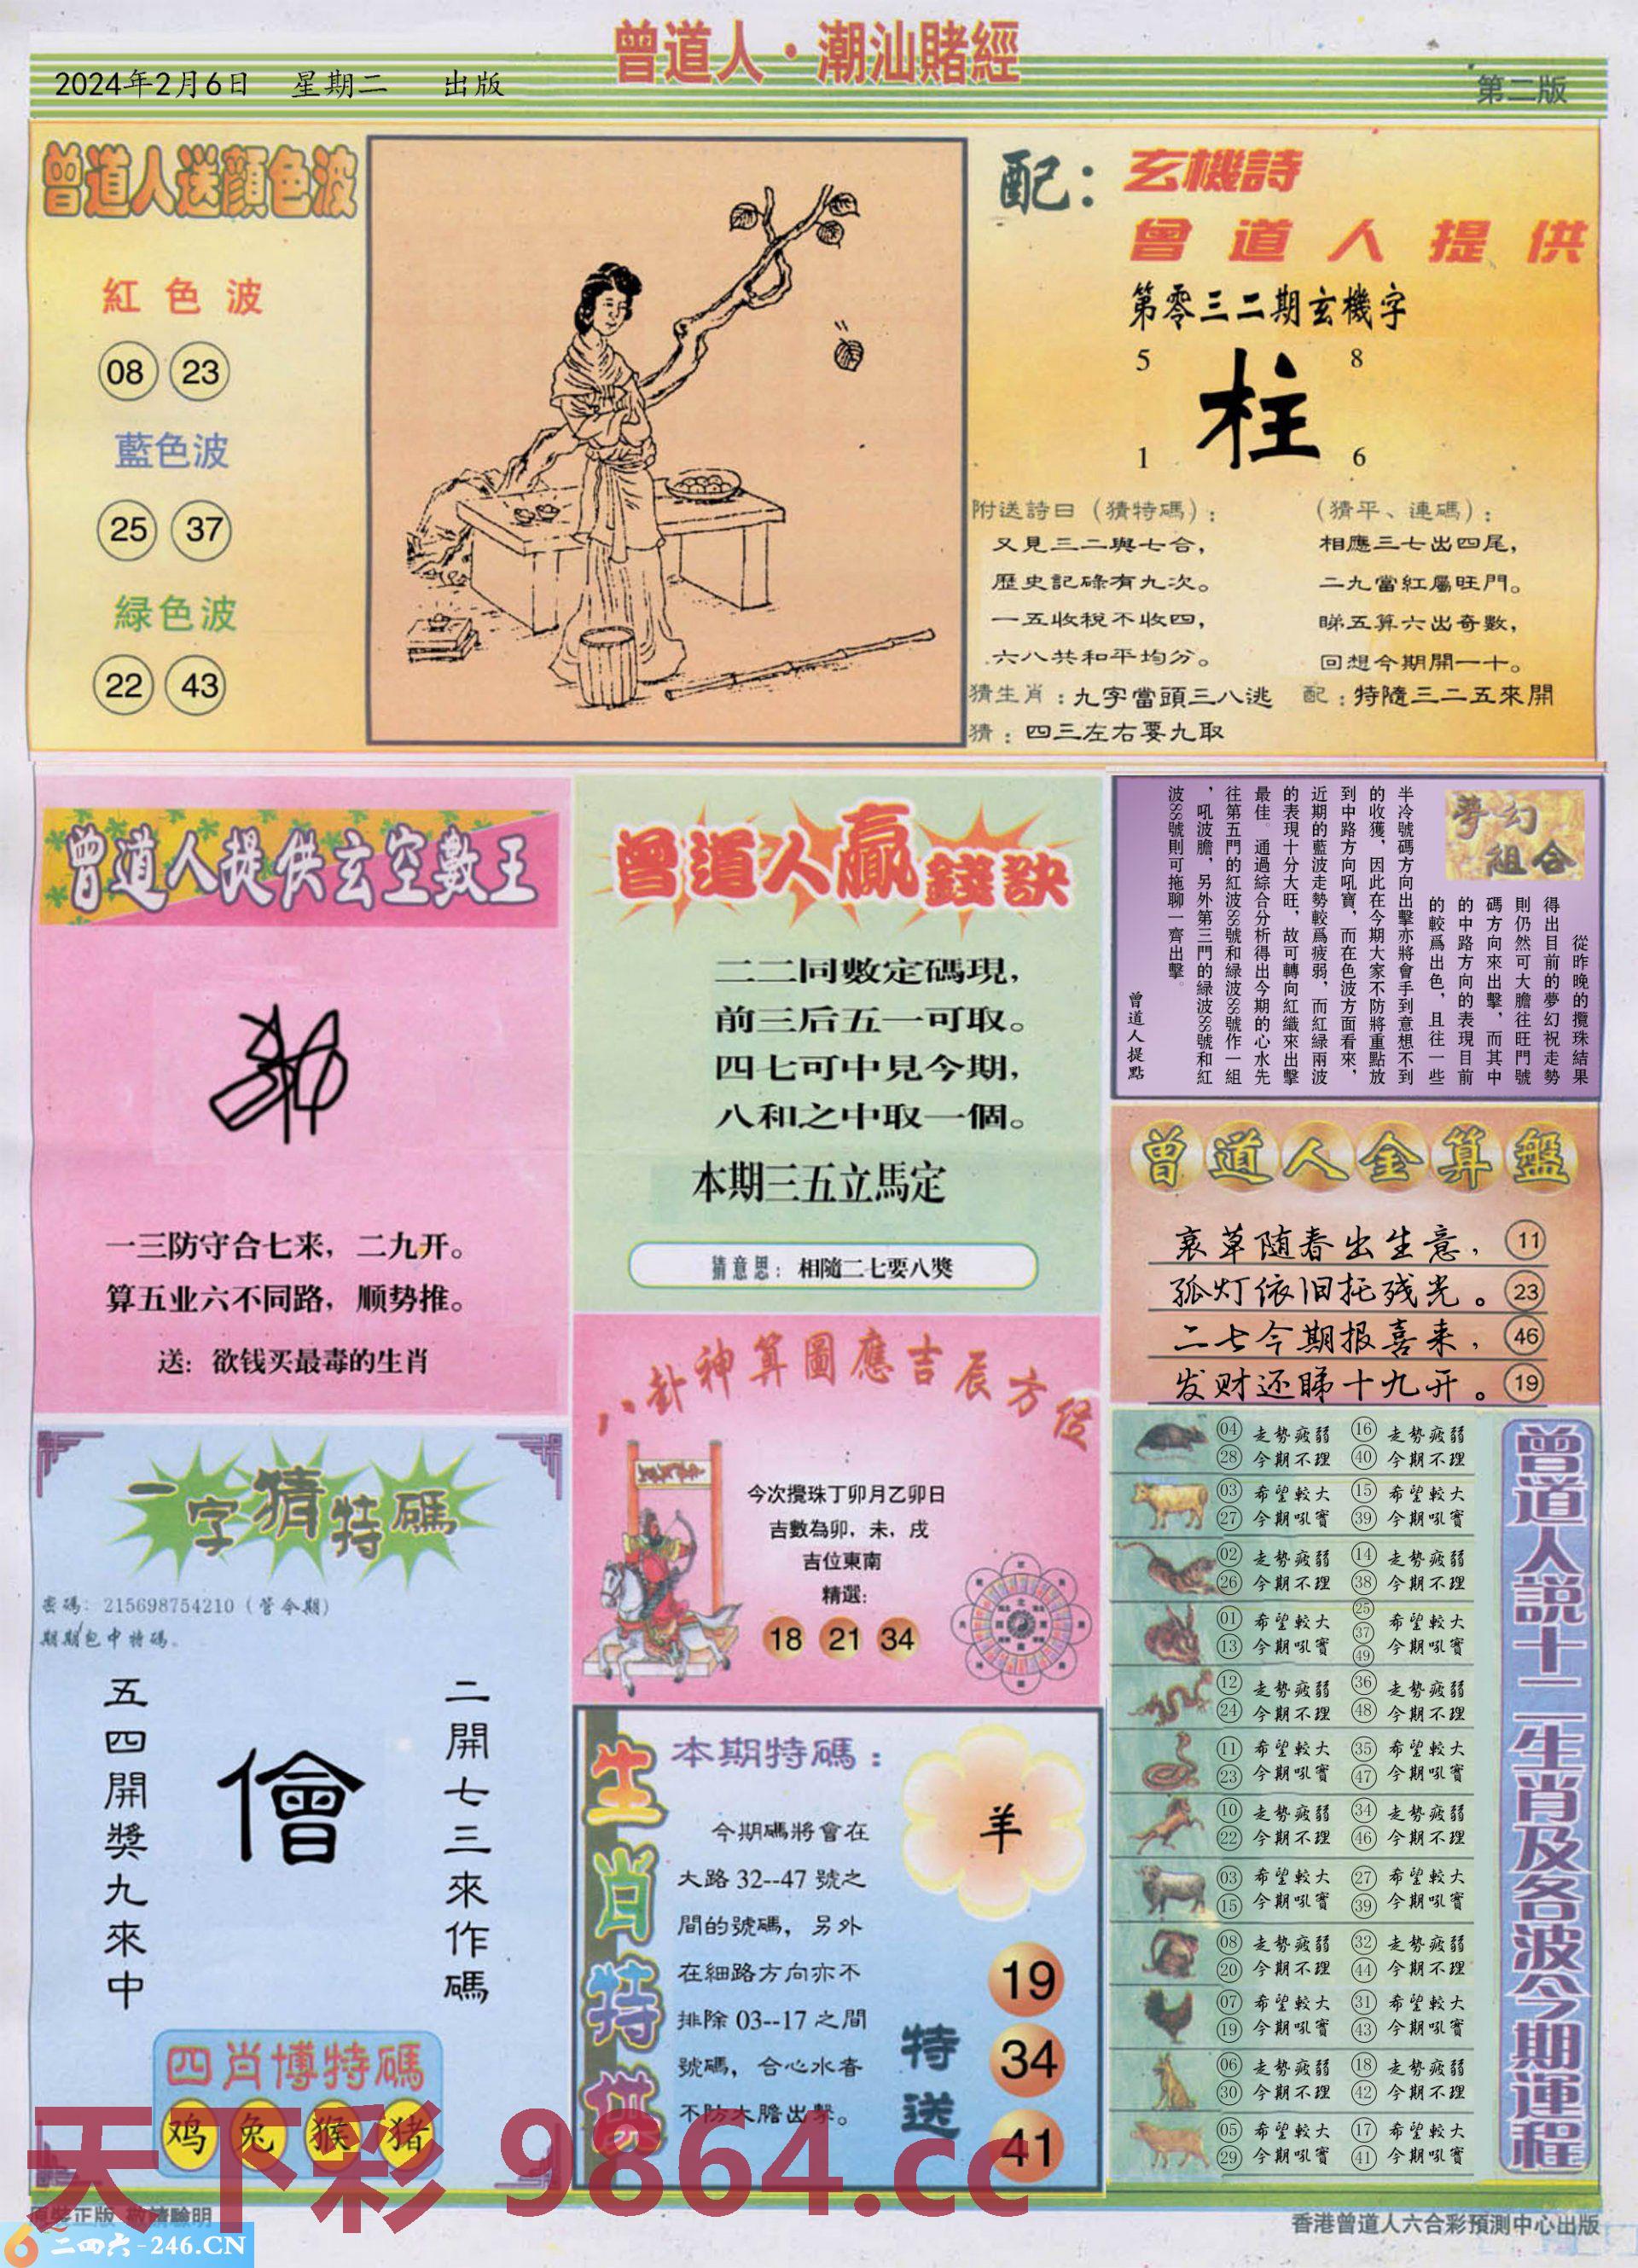 曾道人·潮汕賭經
2024年2月6日 星期二 出版
第二版
曾道人送顔色波
紅色波
08 23
藍色波
25 37
緑色波
22 43
配：玄機詩
曾道人提供
第零三二期玄機字
5 8
柱
1 6
附送詩曰（猜特碼）：
又見三二與七合，
歷史記碌有九次。
一五收稅不收四，
六八共和平均分。
（猜平、連碼）：
相應三七出四尾，
二九當紅屬旺門。
睇五算六出奇數，
回想今期開一十。
猜生肖：九字當頭三八逃
配：特隨三二五來開
猜：四三左右要九取
曾道人提供玄空數王
一三防守合七来，二九开。
算五业六不同路，顺势推。
送：欲钱买最毒的生肖
曾道人贏錢訣
二二同數定碼現，
前三后五一可取。
四七可中見今期，
八和之中取一個。
本期三五立馬定
猜意思：相隨二七要八獎
夢幻組合
從昨晚的攪珠結果
得出目前的夢幻祝走勢
則仍然可大膽往旺門號
碼方向來出擊，而其中
的中路方向的表現目前
的較爲出色，且往一些
半冷號碼方向出擊亦將會手到意想不到
的收獲，因此在今期大家不防將重點放
到中路方向吼寶，而在色波方面看來，
近期的藍波走勢較爲疲弱，而紅綠兩波
的表現十分大旺，故可轉向紅織來出擊
最佳。通過綜合分析得出今期的心水先
往第五門的紅波88號和緑波88號作一組
，吼波膽，另外第三門的緑波88號和紅
波88號則可拖聊一齊出擊。
曾道人提點
曾道人金算盤
哀草随春出生意， 11
孤灯依旧托残光。 23
二七今期报喜来， 46
发财还睇十九开。 19
八卦神算圖應吉辰方位
今次攪珠丁卯月乙卯日
吉數為卯，未，戌
吉位東南
精選：
18 21 34
一字猜特碼
密碼：215698754210（管今期）
期期包中特碼。
二開七三來作碼
儈
五四開獎九來中
四肖博特碼
鸡 兔 猴 猪
生肖特供
本期特碼：
今期碼將會在
大路32--47號之
間的號碼，另外
在細路方向亦不
排除03--17之間
號碼，合心水者
不防大膽出擊。
羊
特送
19
34
41
曾道人說十二生肖及各波今期運程
04 走勢疲弱 16 走勢疲弱
28 今期不理 40 今期不理
03 希望較大 15 希望較大
27 今期吼寶 39 今期吼寶
02 走勢疲弱 14 走勢疲弱
26 今期不理 38 今期不理
01 希望較大 25 37 49 希望較大
13 今期吼寶 今期吼寶
12 走勢疲弱 36 走勢疲弱
24 今期不理 48 今期不理
11 希望較大 35 希望較大
23 今期吼寶 47 今期吼寶
10 走勢疲弱 34 走勢疲弱
22 今期不理 46 今期不理
03 希望較大 27 希望較大
15 今期吼寶 39 今期吼寶
08 走勢疲弱 32 走勢疲弱
20 今期不理 44 今期不理
07 希望較大 31 希望較大
19 今期吼寶 43 今期吼寶
06 走勢疲弱 18 走勢疲弱
30 今期不理 42 今期不理
05 希望較大 17 希望較大
29 今期吼寶 41 今期吼寶
天下彩 9864.cc
原裝正版 敬請驗明
二四六-246.CN
香港曾道人六合彩預測中心出版